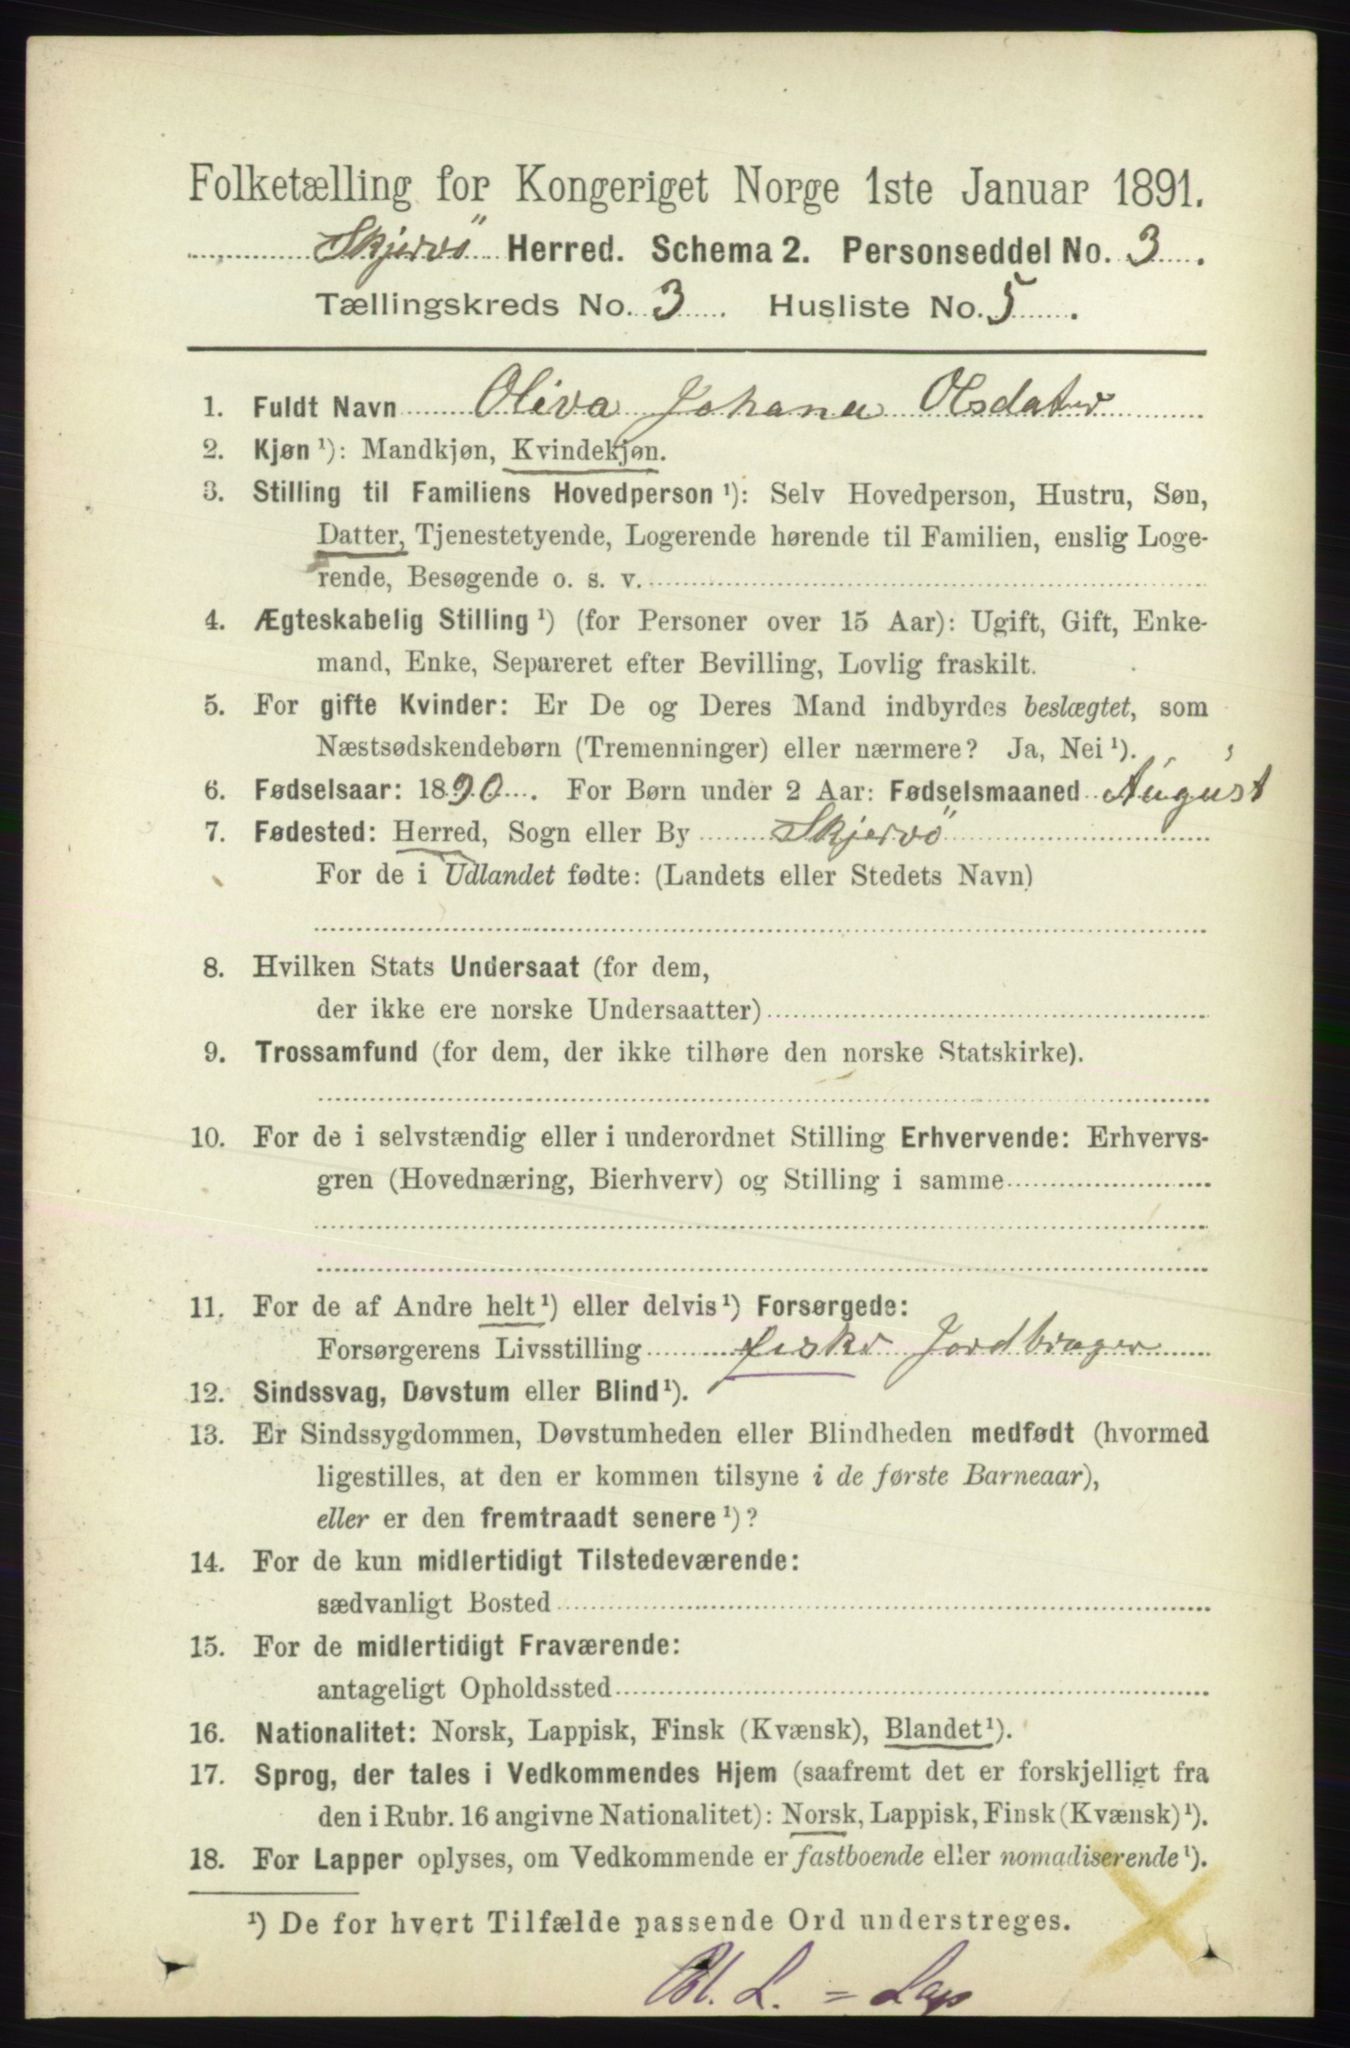 Folketælling for Kongeriget Norge 1ste Januar 1891.
Skjervö Herred. Schema 2. Personseddel No. 3.
Tællingskreds No. 3 Husliste No. 5.
1. Fuldt Navn Oliva Johana Olsdater
2. Kjøn ¹): Mandkjøn, Kvindekjøn.
3. Stilling til Familiens Hovedperson ¹): Selv Hovedperson, Hustru, Søn,
Datter, Tjenestetyende, Logerende hørende til Familien, enslig Loge-
rende, Besøgende o. s. v.
4. Ægteskabelig Stilling ¹) (for Personer over 15 Aar): Ugift, Gift, Enke-
mand, Enke, Separeret efter Bevilling, Lovlig fraskilt.
5. For gifte Kvinder: Er De og Deres Mand indbyrdes beslægtet, som
Næstsødskendebørn (Tremenninger) eller nærmere? Ja, Nei ¹).
6. Fødselsaar: 1890. For Børn under 2 Aar: Fødselsmaaned August
7. Fødested: Herred, Sogn eller By Skjervö
For de i Udlandet fødte: (Landets eller Stedets Navn)
8. Hvilken Stats Undersaat (for dem,
der ikke ere norske Undersaatter)
9. Trossamfund (for dem, der ikke tilhøre den norske Statskirke).
10. For de i selvstændig eller i underordnet Stilling Erhvervende: Erhvervs-
gren (Hovednæring, Bierhverv) og Stilling i samme
11. For de af Andre helt ¹) eller delvis ¹) Forsørgede:
Forsørgerens Livsstilling fisker Jordbruger
12. Sindssvag, Døvstum eller Blind ¹).
13. Er Sindssygdommen, Døvstumheden eller Blindheden medfødt (hvormed
ligestilles, at den er kommen tilsyne i de første Barneaar),
eller er den fremtraadt senere ¹)?
14. For de kun midlertidigt Tilstedeværende:
sædvanligt Bosted
15. For de midlertidigt Fraværende:
antageligt Opholdssted
16. Nationalitet: Norsk, Lappisk, Finsk (Kvænsk), Blandet ¹).
17. Sprog, der tales i Vedkommendes Hjem (saafremt det er forskjelligt fra
den i Rubr. 16 angivne Nationalitet): Norsk, Lappisk, Finsk (Kvænsk) ¹).
18. For Lapper oplyses, om Vedkommende er fastboende eller nomadiserende ¹).
¹) De for hvert Tilfælde passende Ord understreges.
Bl. L. = Lap